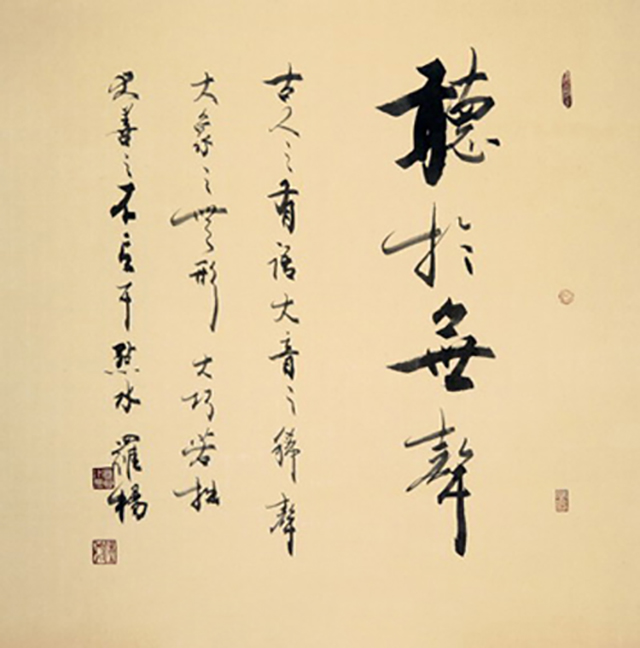 聽於無聲
古人之有語大音之稀聲
大象之無形 大巧若拙
善之不言 水 羅楊